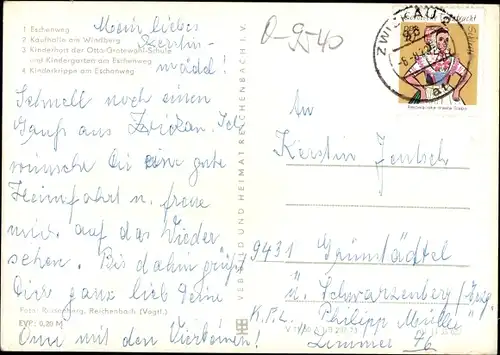 1 Eschenweg
2 Kaufhalle am Windberg
3 Kinderhort der Otto-Grotewohl-Schule
und Kindergarten am Eschenweg
4 Kinderkrippe am Eschenweg
Mein liebes
Zentin-
mädel!
Schnell noch einen
Gruß aus Zwickau. Ich
wünsche Dir eine gute
Heimfahrt u. freue
mich auf das Wieder
sehen. Bis dahin grüßt
Dich ganz lieb Deine
Foto: Reichenbach (Vogtl.)
EVP: 0,20 M
Oma mit den Vierbeinen!
VEB BILD UND HEIMAT REICHENBACH I. V.
0-9540
ZWICKAU 2
An
Kerstin Jentsch
9431 Grünstädtel
ü. Schwarzenberg/Erzg.
K.F.L. "Philipp Müller"
Zimmer 26